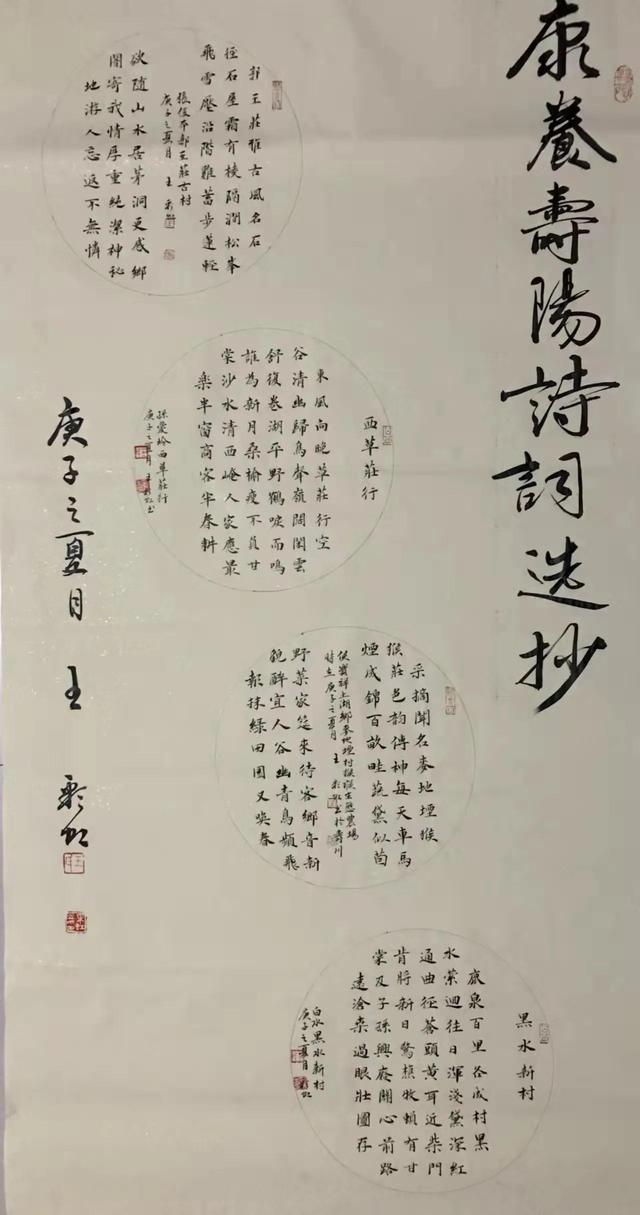 康養壽陽詩詞选抄
王莊雅古風名石
径石屋霜有棱隔澗松峯
飛雪壓沿階難蓄步蓮輕
張俊平郭王莊古村
庚子之夏月 王彩虹
欲随山水居茅洞更感鄉
閣寄我情厚重純潔神祕
地游人忘返不無憐
西草莊行
東風向晚草莊行空
谷清幽歸鳥聲嶺闊閑雲
舒復卷湖平野鶴唳而鳴
誰為新月桑榆疫不負甘
棠沙水清西崦人家應最
楽半窗商客半春耕
孫愛玲西草莊行
庚子之夏月 王彩虹书
采摘聞名麥地堙猴
猴莊邑韵傳神每天車馬
煙成錦百畝畦蔬黛似茵
侯寶祥上湖鄉麥地堙村猴猴生態農場
庚子之夏月 王彩虹书於壽川
野菜家筵來待客鄉音新
貌醉宜人谷幽青鳥頻飛
報抹緑田園又喚春
黒水新村
感泉百里谷成村黒
水縈迴往日渾淺黛深紅
通曲径蒼頭黄耳近柴門
肯将新日驚樵牧頓有甘
棠及子孫興廢關心前路
遠滄桑過眼壮圖存
白冰黒水新村
庚子之夏月 彩虹
庚子之夏月 王彩虹